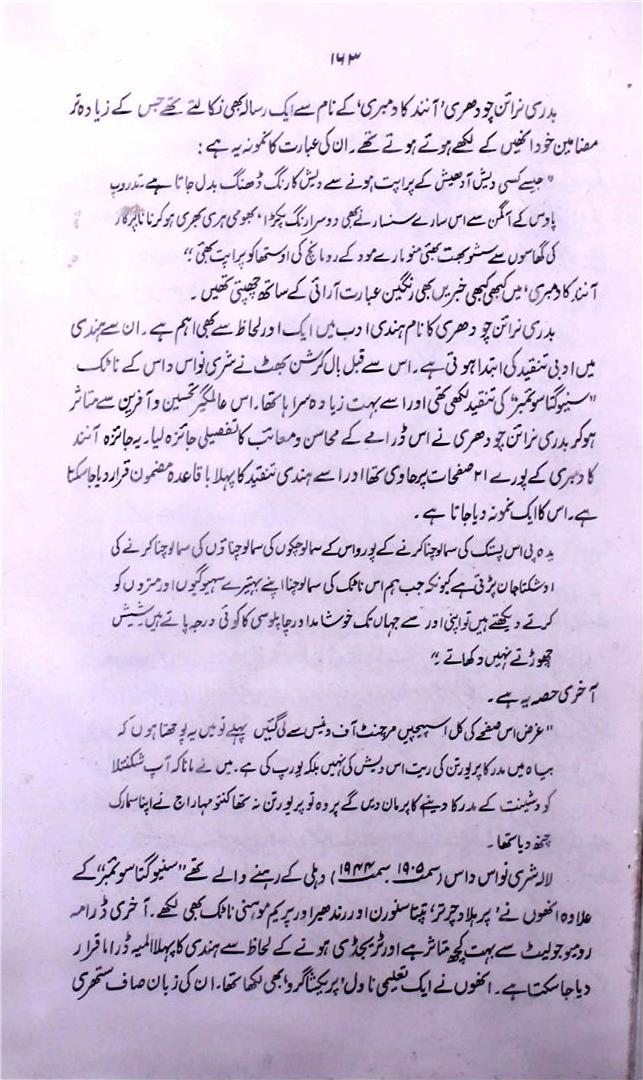 ۱۶۳
بدری نرائن چودھری ’آنند کادمبری‘ کے نام سے ایک رسالہ بھی نکالتے تھے جس کے زیادہ تر
مضامین خود انھیں کے لکھے ہوئے ہوتے تھے۔ ان کی عبارت کا نمونہ یہ ہے :
”جیسے کسی دیش آدھیش کے پراپت ہونے سے دیش کا رنگ ڈھنگ بدل جاتا ہے تدروپ
پاوس کے آگمن سے اس سارے سنسار نے بھی دوسرا رنگ پکڑا، بھومی ہری بھری ہو کر نانا پرکار
کی گھاسوں سے سشوبھت بھئی منو مارے مود کے رومانچ کی اوستھا کو پراپت بھئی“
آنند کادمبری، میں کبھی کبھی خبریں بھی رنگین عبارت آرائی کے ساتھ چھپتی تھیں۔
بدری نرائن چودھری کا نام ہندی ادب میں ایک اور لحاظ سے بھی اہم ہے۔ ان سے ہندی
میں ادبی تنقید کی ابتدا ہوتی ہے۔ اس سے قبل بال کرشن بھٹ نے شری نواس داس کے ناٹک
”سنیوگتا سوئمبر“ کی تنقید لکھی تھی اور اسے بہت زیادہ سراہا تھا۔ اس عالمگیر تحسین و آفرین سے متاثر
ہو کر بدری نرائن چودھری نے اس ڈرامے کے محاسن و معائب کا تفصیلی جائزہ لیا۔ یہ جائزہ آنند
کادمبری کے پورے ۲۱ صفحات پر حاوی تھا اور اسے ہندی تنقید کا پہلا باقاعدہ مضمون قرار دیا جا سکتا
ہے۔ اس کا ایک نمونہ دیا جاتا ہے۔
یدہ پی اس پستک کی سمالوچنا کرنے کے پورو اس کے سمالوچکوں کی سمالوچناؤں کی سمالوچنا کرنے کی
اوشکتا جان پڑتی ہے کیونکہ جب ہم اس ناٹک کی سمالوچنا اپنے بہتیرے سہیوگیوں اور متروں کو
کرتے دیکھتے ہیں تو اپنی اور سے جہاں تک خوشامد اور چاپلوسی کا کوئی درجہ پاتے ہیں شیش
چھوڑتے نہیں دکھاتے“
آخری حصہ یہ ہے۔
”غرض اس صفحے کی کل اسپیچیں مرچنٹ آف وینس سے لی گئیں پہلے تو میں یہ پوچھتا ہوں کہ
بیاہ میں مدرکا پریورتن کی ریت اس دیش کی نہیں بلکہ یورپ کی ہے۔ میں نے مانا کہ آپ شکنتلا
کو دشینت کے مدرکا دینے کا پرمان دیں گے پر وہ تو پریورتن نہ تھا کنتو مہاراج نے اپنا سمارک
چنھ دیا تھا۔
لالہ شری نواس داس (سمبت ۱۹۰۵، سمبت ۱۹۴۴) دہلی کے رہنے والے تھے ”سنیوگتا سوئمبر“ کے
علاوہ انھوں نے ’پرہلاد چرتر‘ تپتا سنورن اور رندھیر اور پریم موہنی ناٹک بھی لکھے۔ آخری ڈرامہ
رومیو جولیٹ سے بہت کچھ متاثر ہے اور ٹریجڈی ہونے کے لحاظ سے ہندی کا پہلا المیہ ڈراما قرار
دیا جا سکتا ہے۔ انھوں نے ایک تعلیمی ناول ’پریکشا گرو‘ بھی لکھا تھا۔ ان کی زبان صاف ستھری